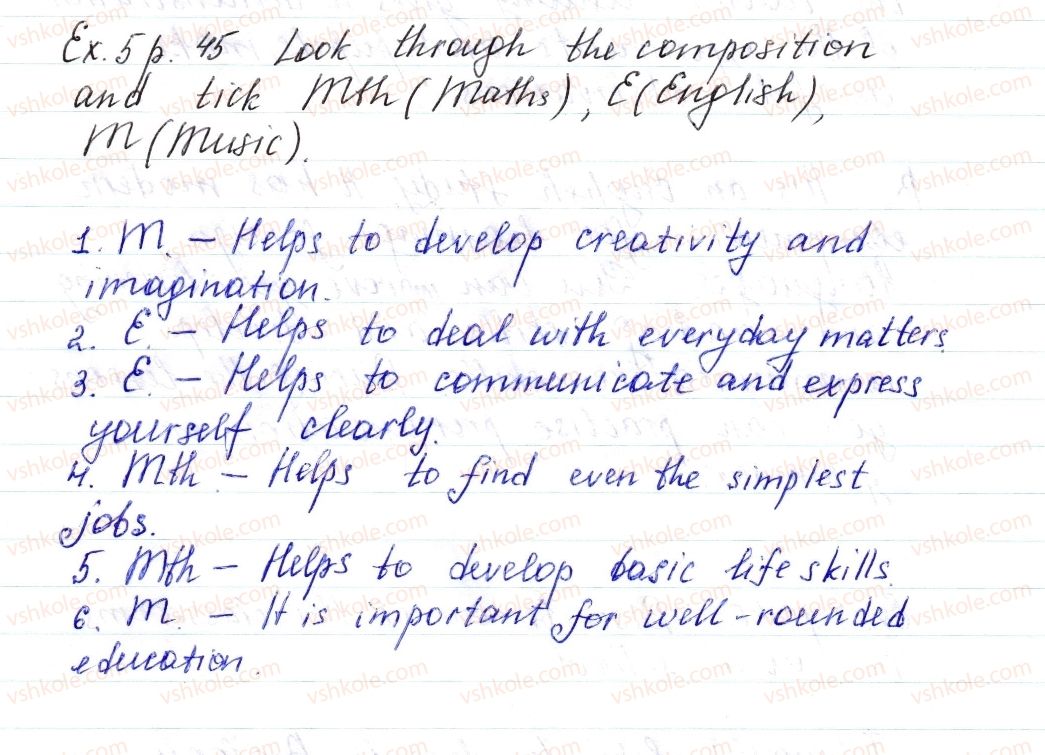 Ex. 5 p. 45 Look through the composition
and tick Mth (Maths), E (English),
M (Music).
1. M. – Helps to develop creativity and
imagination.
2. E. – Helps to deal with everyday matters.
3. E. – Helps to communicate and express
yourself clearly.
4. Mth – Helps to find even the simplest
jobs.
5. Mth – Helps to develop basic life skills.
6. M. – It is important for well-rounded
education.
vshkole.com